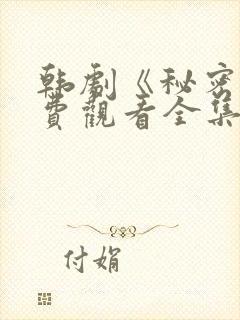 韩剧《秘密
费观看全集
付娟